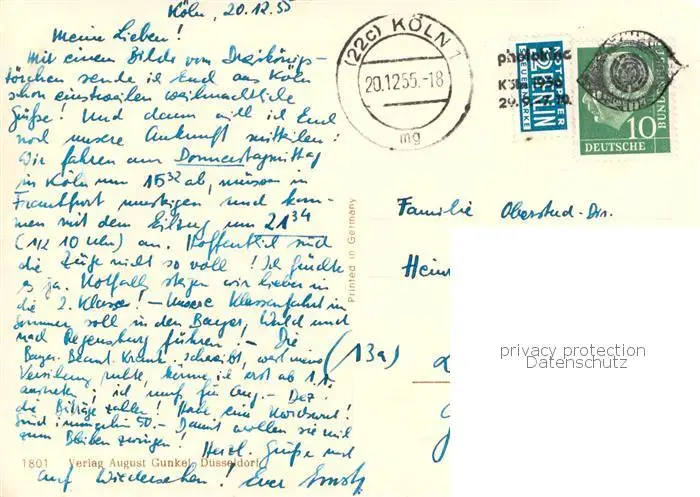 Köln, 20.12.55
Meine Lieben!
Mit einem Bilde vom Dreikönigs-
törchen sende ich Euch aus Köln
schon einstweilen weihnachtliche
Grüße! Und dann will ich Euch
noch unsere Ankunft mitteilen:
Wir fahren am Donnerstagmittag
in Köln um 15³² ab, müssen in
Frankfurt umsteigen und kom-
men mit dem Eilzug um 21³⁴
(1/2 10 Uhr) an. Hoffentlich sind
die Züge nicht so voll! Ich fürchte
es ja. Notfalls steigen wir lieber in
die 2. Klasse! – Unsere Klassenfahrt im
Sommer soll in den Bayer. Wald und
nach Regensburg führen. – Die
Bayr. Beamt. Krank. schreibt, weil meine
Versicherung ruhte, könne ich erst ab 1.1.
austreten; ich muß für Aug. – Dez.
die Beiträge zahlen! Habe eine
Sind immerhin 50.- Damit wollen sie mich
zum Bleiben zwingen!
Herzl. Grüße und
auf Wiedersehen! Euer
1801 Verlag August Gunkel, Düsseldorf
Printed in Germany
(22c) KÖLN 1
20.12.55.-18
mg
photokina
KÖLN 1956
29.9.-7.10.
NOTOPFER
2 BERLIN
STEUERMARKE
10
DEUTSCHE
BUNDESPOST
Familie Oberstud.-Dir.
Hein
(13a)
privacy protection
Datenschutz